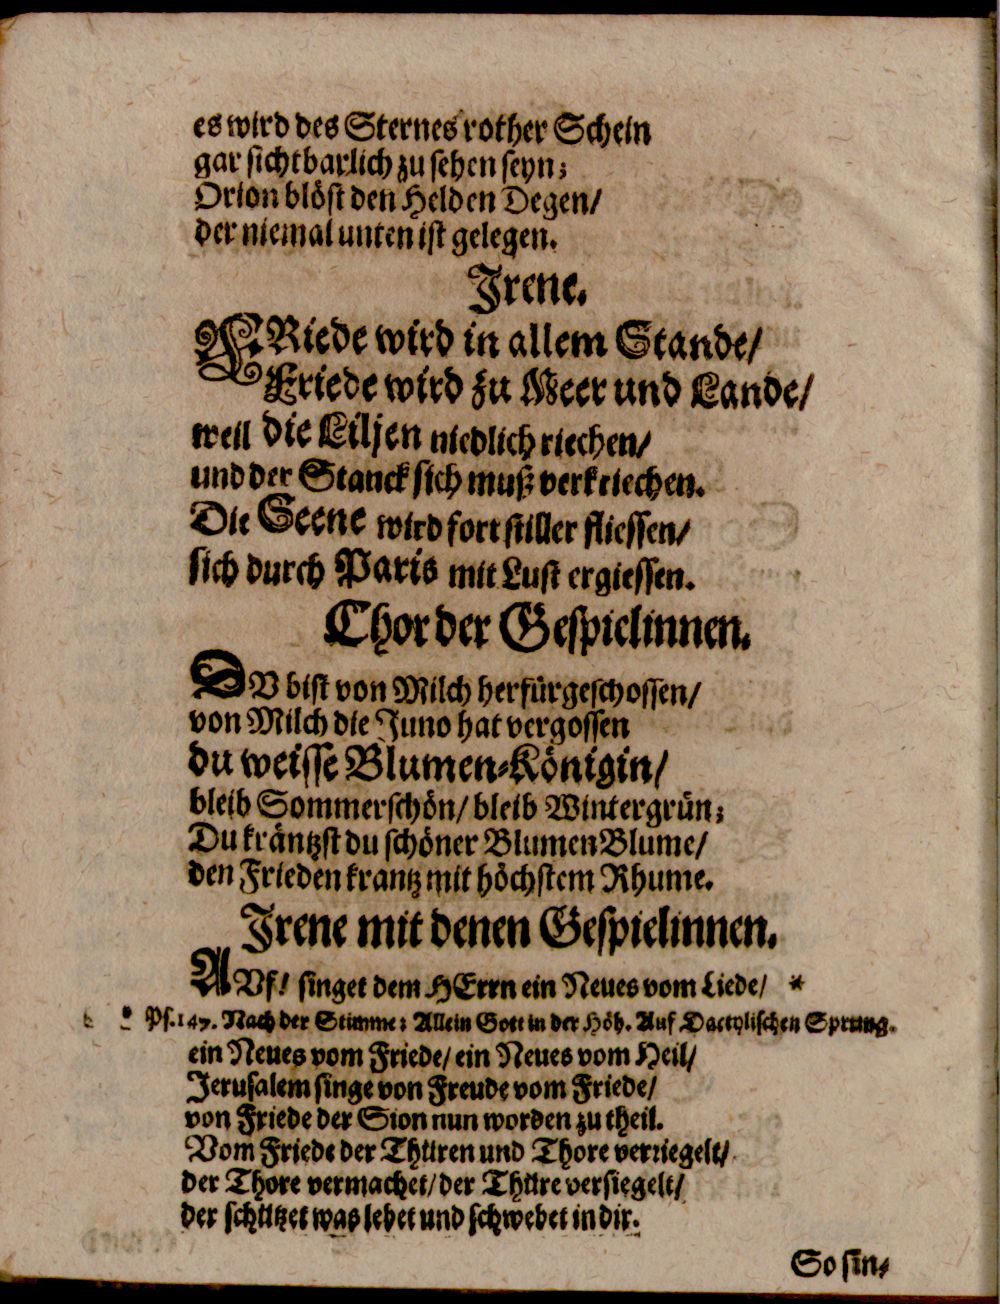 es wird des Sternes rother Schein
gar sichtbarlich zu sehen seyn;
Orion blöst den Helden Degen/
der niemal unten ist gelegen.
Irene.
FRiede wird in allem Stande/
Friede wird zu Meer und Lande/
weil die Liljen niedlich riechen/
und der Stanck sich muß verkriechen.
Die Seene wird fort stiller fliessen/
sich durch Paris mit Lust ergiessen.
Chor der Gespielinnen.
DV bist von Milch herfürgeschossen/
von Milch die Juno hat vergossen
du weisse Blumen-Königin/
bleib Sommerschön/ bleib Wintergrün;
Du kräntzst du schöner Blumen Blume/
den Frieden krantz mit höchstem Rhume.
Irene mit denen Gespielinnen.
AVf! singet dem HErrn ein Neues vom Liede/ *
* Ps. 147. Nach der Stimme: Allein Gott in der Höh. Auf Dactylischen Sprung.
ein Neues vom Friede/ ein Neues vom Heil/
Jerusalem singe von Freude vom Friede/
von Friede der Sion nun worden zu theil.
Vom Friede der Thüren und Thore verriegelt/
der Thore vermachet/ der Thüre versiegelt/
der schützet was lebet und schwebet in dir.
So sin-